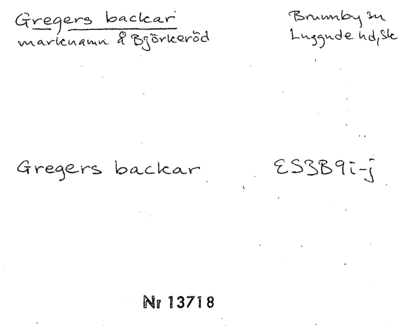 Gregers backar
marknamn å Björkeröd
Brunnby sn
Luggude hd, Sk
Gregers backar
ES3B9i-j
Nr 13718